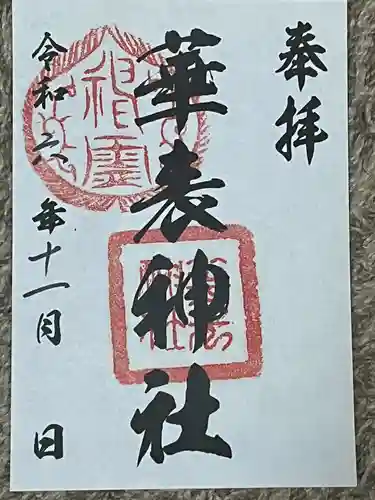 奉拝
華表神社
令和六年十一月 日